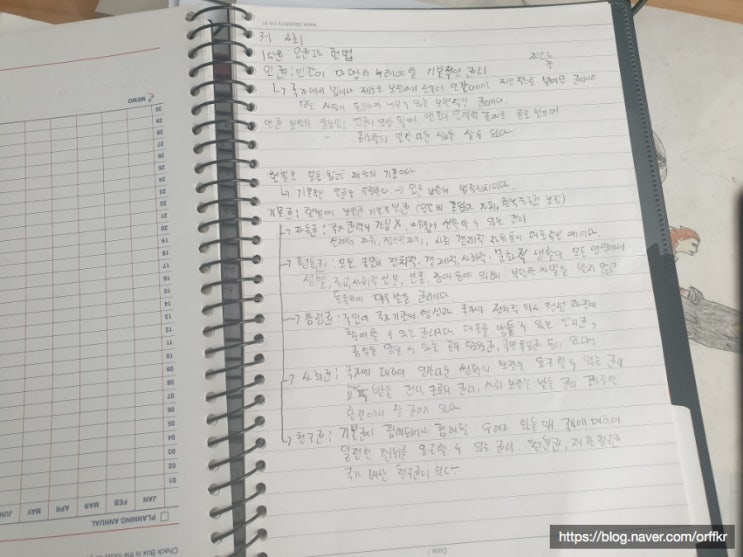 www.daystory.co.kr
3-1 사회
1단원 인권과 헌법
인권 : 인간이 마땅히 누려야 할 기본적인 권리
↳ 국가에서 법이나 제도로 보장하기 전부터 인간에게 자연적으로 부여된 권리이다
천부인권
모든 사람이 동등하게 누릴 수 있는 보편적인 권리이다.
인권 보장의 중요성
인간다운 삶을 살 수 있다.
헌법은 모든 법과 제도의 기본이다
↳ 기본적인 인권을 규정한다 → 인권 보장의 법적장치이다.
기본권 : 헌법이 보장한 기본적 인권 (인간의 존엄과 가치, 행복추구권 보장)
↳ 자유권 : 국가권력의 간섭 X, 자유롭게 생활할 수 있는 권리
신체의 자유, 사회 경제적 자유 등이 대표적인 예이다.
→ 평등권 : 모든 국민이 정치적, 경제적, 사회적, 문화적 생활의 모든 영역에서
성별, 종교, 사회적 신분, 인종, 장애 등에 의해 부당한 차별을 받지 않고
동등하게 대우 받을 권리이다
→ 참정권 : 국민이 국가기관의 형성과 국가의 정치적 의사 형성 과정에
참여할 수 있는 권리이다. 대표를 뽑을 수 있는 선거권,
공직을 맡을 수 있는 공무담임권, 국민투표권 등이 있다.
→ 사회권 : 국가에 대하여 인간다운 생활의 보장을 요구할 수 있는 권리
교육 받을 권리, 근로의 권리, 사회 보장을 받을 권리
환경에서 살 권리가 있다
→ 청구권 : 기본권이 침해되거나 침해될 우려가 있을 때 국가에 대하여
일정한 행위를 요구할 수 있는 권리. 청원권, 재판청구권
국가 배상 청구권이 있다
MEMO
30
29
28
27
26
25
24
23
22
21
20
19
18
17
16
15
14
13
12
11
10
09
08
07
06
05
04
03
02
01
JAN
FEB
MAR
APR
MAY
JUN
PLANNING ANNUAL
Check Box is the
Date /
https://blog.naver.com/orffkr